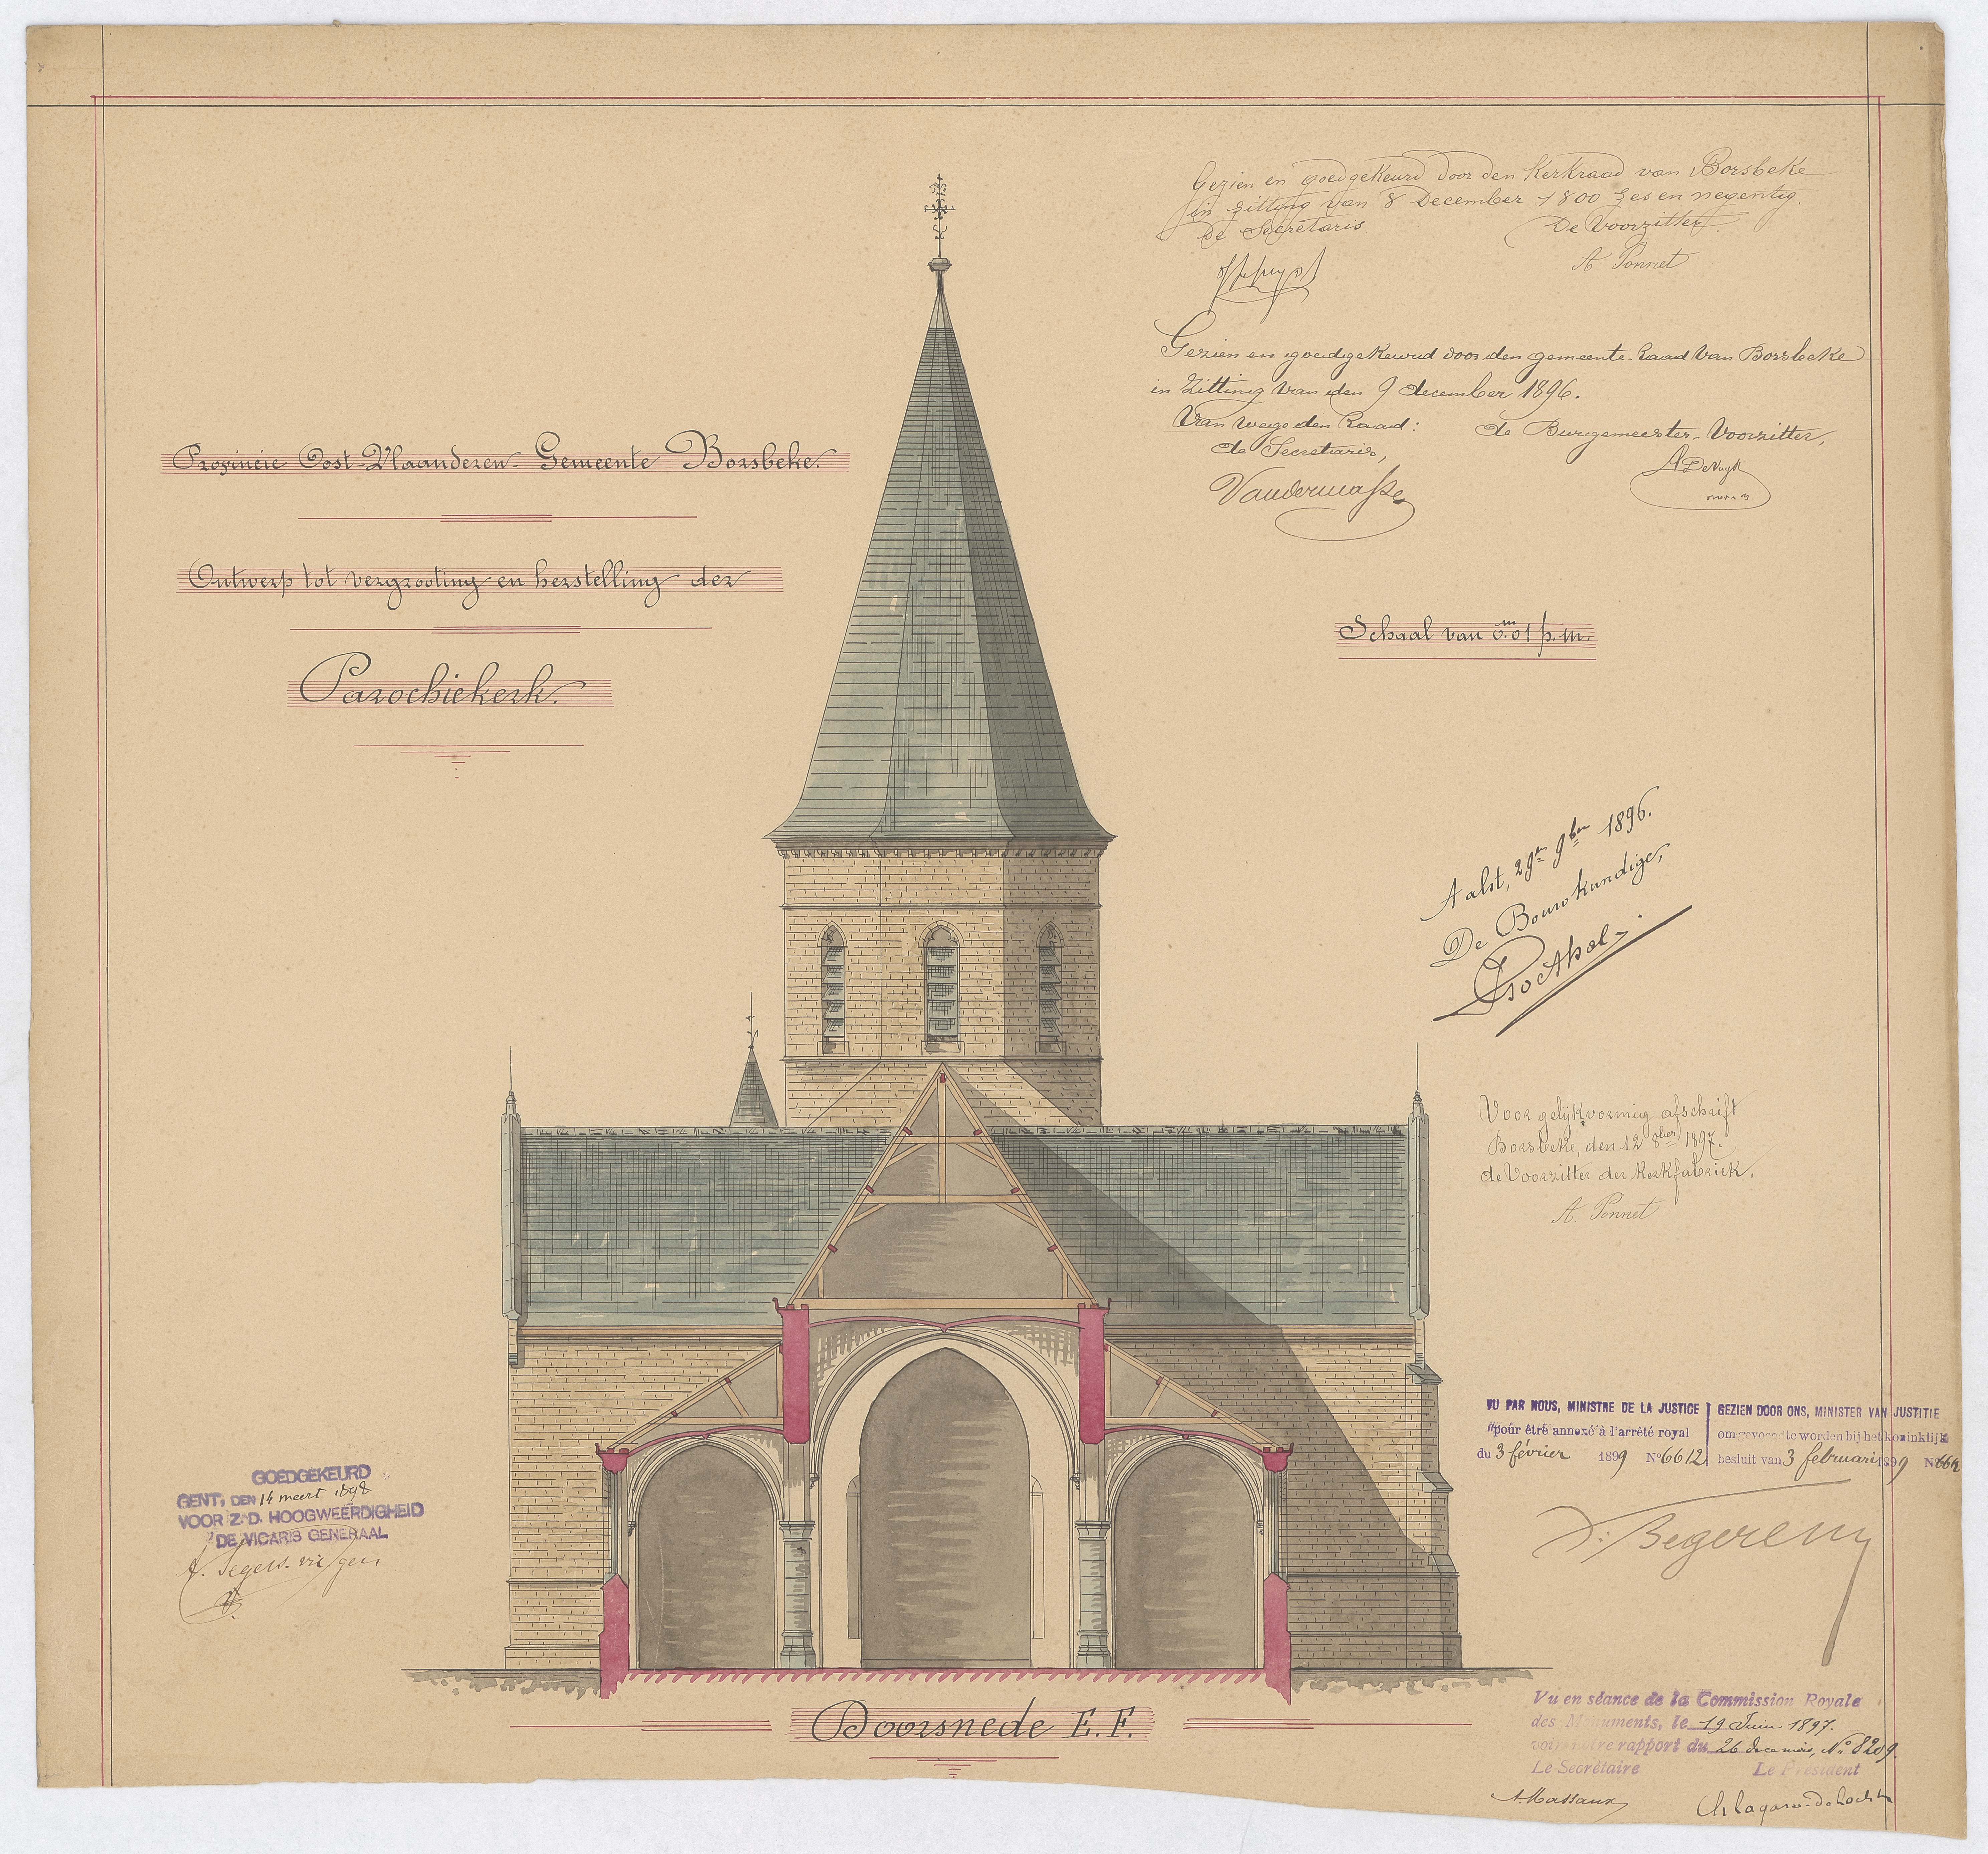 Provincie Oost-Vlaanderen Gemeente Borsbeke.
Ontwerp tot vergrooting en herstelling der
Parochiekerk.
Gezien en goedgekeurd door den Kerkraad van Borsbeke
in zitting van 8 December 1800 zes en negentig.
De Secretaris De Voorzitter.
A Ponnet
Gezien en goedgekeurd door den gemeente-Raad van Borsbeke
in Zitting van den 9 december 1896.
Van wege den Raad: de Burgemeester-Voorzitter,
de Secretaris,
Schaal van 0.m01 p. m.
Aalst, 29n 9ber 1896.
De Bouwkundige,
Voor gelijkvormig afschrift
Borsbeke, den 12 8ber 1897.
de Voorzitter der Kerkfabriek.
A Ponnet
GOEDGEKEURD
GENT, DEN 14 meert 1898
VOOR Z. D. HOOGWEERDIGHEID
DE VICARIS GENERAAL
VU PAR NOUS, MINISTRE DE LA JUSTICE
pour être annexé à l'arrêté royal
du 3 février 1899 No 6612
GEZIEN DOOR ONS, MINISTER VAN JUSTITIE
om gevoegd te worden bij het koninklijk
besluit van 3 februari 1899 No 6612
V. Begerem
Doorsnede E. F.
Vu en séance de la Commission Royale
des Monuments, le 19 Juin 1897.
voir notre rapport du 26 No 8209.
Le Secrétaire Le Président
A. Massaux